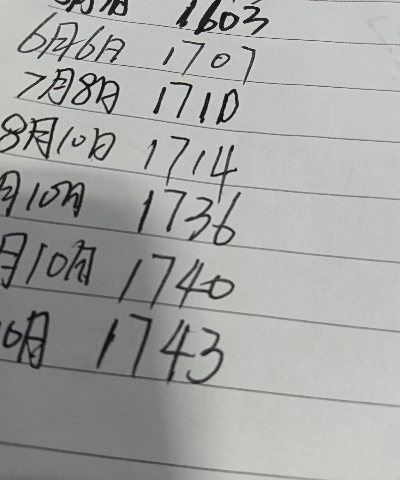 1603
6月6日 1707
7月8日 1710
8月10日 1714
月10日 1736
月10月 1740
0月 1743